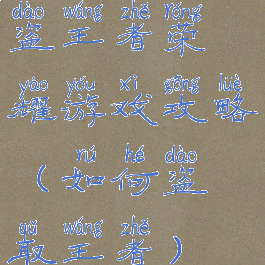 dào wáng zhě róng
盗王者荣
yào yóu xì gōng lüè
耀游戏攻略
rú hé dào
(如何盗
qǔ wáng zhě
取王者)